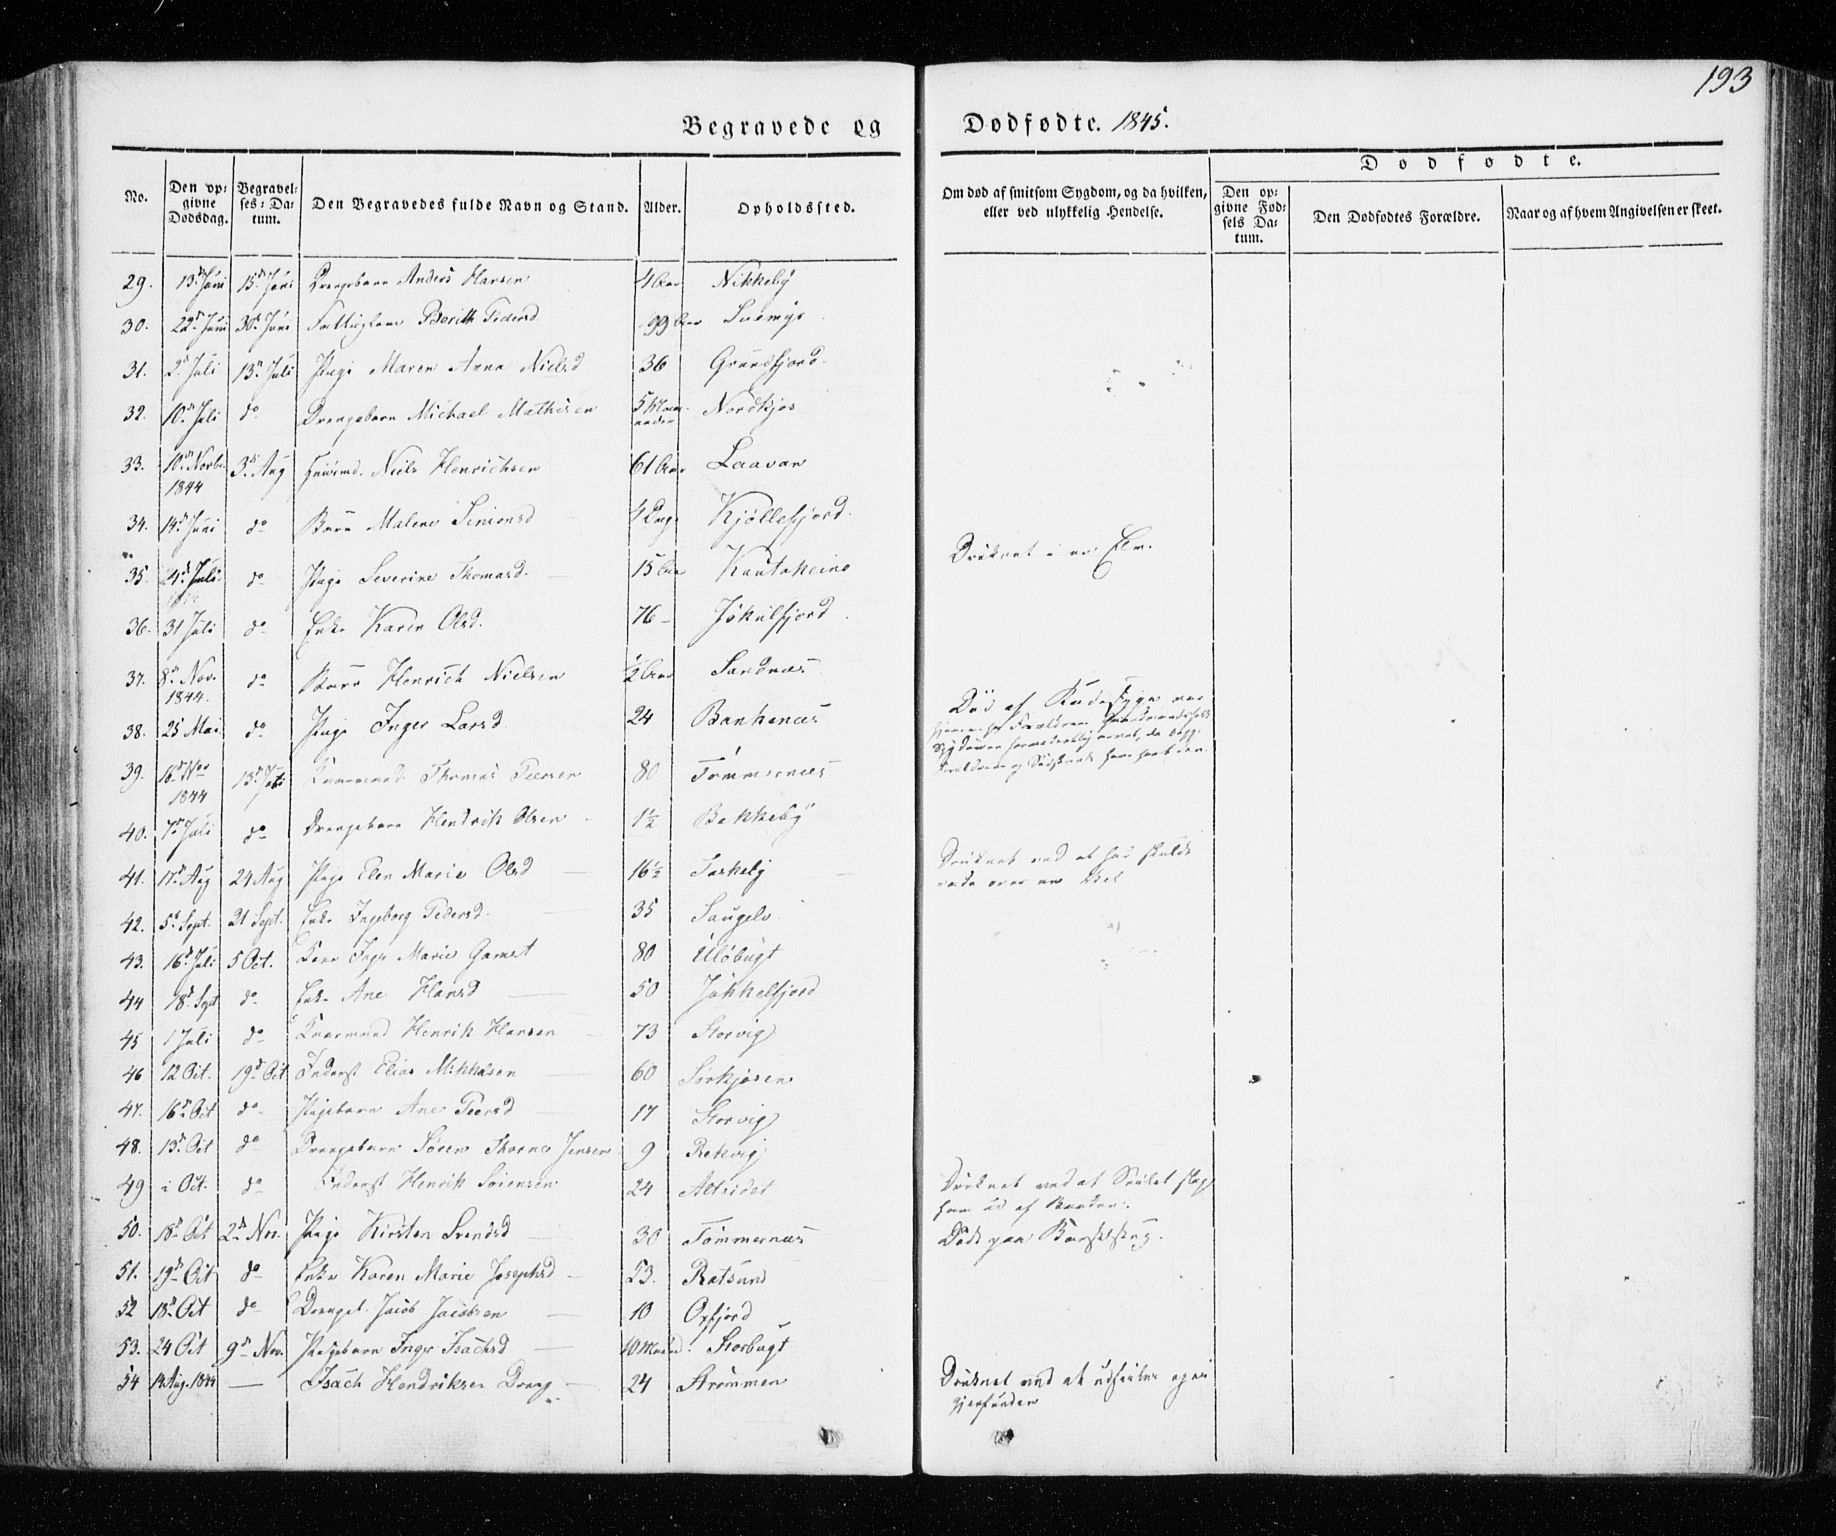 193
Begravede og Dødfødte. 1845.
No.
Den opgivne Dødsdag.
Begravelses-Datum.
Den Begravedes fulde Navn og Stand.
Alder.
Opholdssted.
Om død af smitsom Sygdom, og da hvilken, eller ved ulykkelig Hendelse.
Dødfødte.
Den opgivne Fødsels Datum.
Den Dødfødtes Forældre.
Naar og af hvem Angivelsen er skeet.
29. 13d Juni 15d Juni Drengebarn Anders Hansen 4 Aar Nikkeby
30. 22d Juni 30d Juni Berith Pedersd 99 Aar
31. 2d Juli 13d Juli Pige Maren Anna Nielsd 36 Grundfjord
32. 10d Juli do Drengebarn Michael Mathisen 5 Maaneder Nordkjos
33. 10d Novbr 1844 3d Aug Niels Henrichsen 61 Aar Laavan
34. 14d Juni do Barn Malene Simonsd 4 Dag Kjøllefjord
35. 24d Juli do Pige Severine Thomasd. 15 Aar Kautokeino Druknet i en Elv.
36. 31 Juli do Enke Karen Olsd. 76 Jøkulfjord
37. 8d Nov. 1844. do Barn Henrich Nielsen ½ Aar Sandnæs
38. 25 Mai do Pige Inger Larsd. 24 Bankenæs Død af Radesyge
39. 16d Nov 1844 13d Kaarmand Thomas Peersen 80 Tømmernæs
40. 7d Juli do Drengebarn Hendrik Olsen 1½ Bakkeby
41. 17d Aug 24 Aug Pige Elen Marie Olsd 16½ Taskeby Druknet ved at hun skulde
42. 5d Sept. 21 Sept. Enke Ingeborg Pedersd. 35 Saugelv
43. 16d Juli 5 Oct. Marie Garnet 80 Uløbugt
44 18d Sept do Enke Ane Hansd 50 Jøkkelfjord
45 1 Juli do Kaarmand Henrik Hansen 73 Storvig
46 12 Oct. 19d Oct Inderst Elias Mikkelsen 60 Sørkjosen
47. 16d Oct do Pigebarn Ane Peersd 17 Storvig
48. 13d Oct do Drengebarn Søren Jensen 9 Rekvig
49 i Oct. do Inderst Henrik Sørensen 24 Alteidet Druknet ved at
ham ud af Baaden.
50. 18d Oct 2d Nov. Pige Kirsten Svendsd 30 Tømmernæs Døde paa Barselseng.
51. 19d Oct do Enke Karen Marie Josephsd 53. Rotsund
52 18d Oct do Drengeb. Jacob Jacobsen 10 Oxfjord
53. 24 Oct 9d Nov. Pigebarn Inger Isachsd 10 Maaned. Storbugt
54 14 Aug. 1844 — Isach Hendriksen Dreng 24 Strømmen Druknet ved